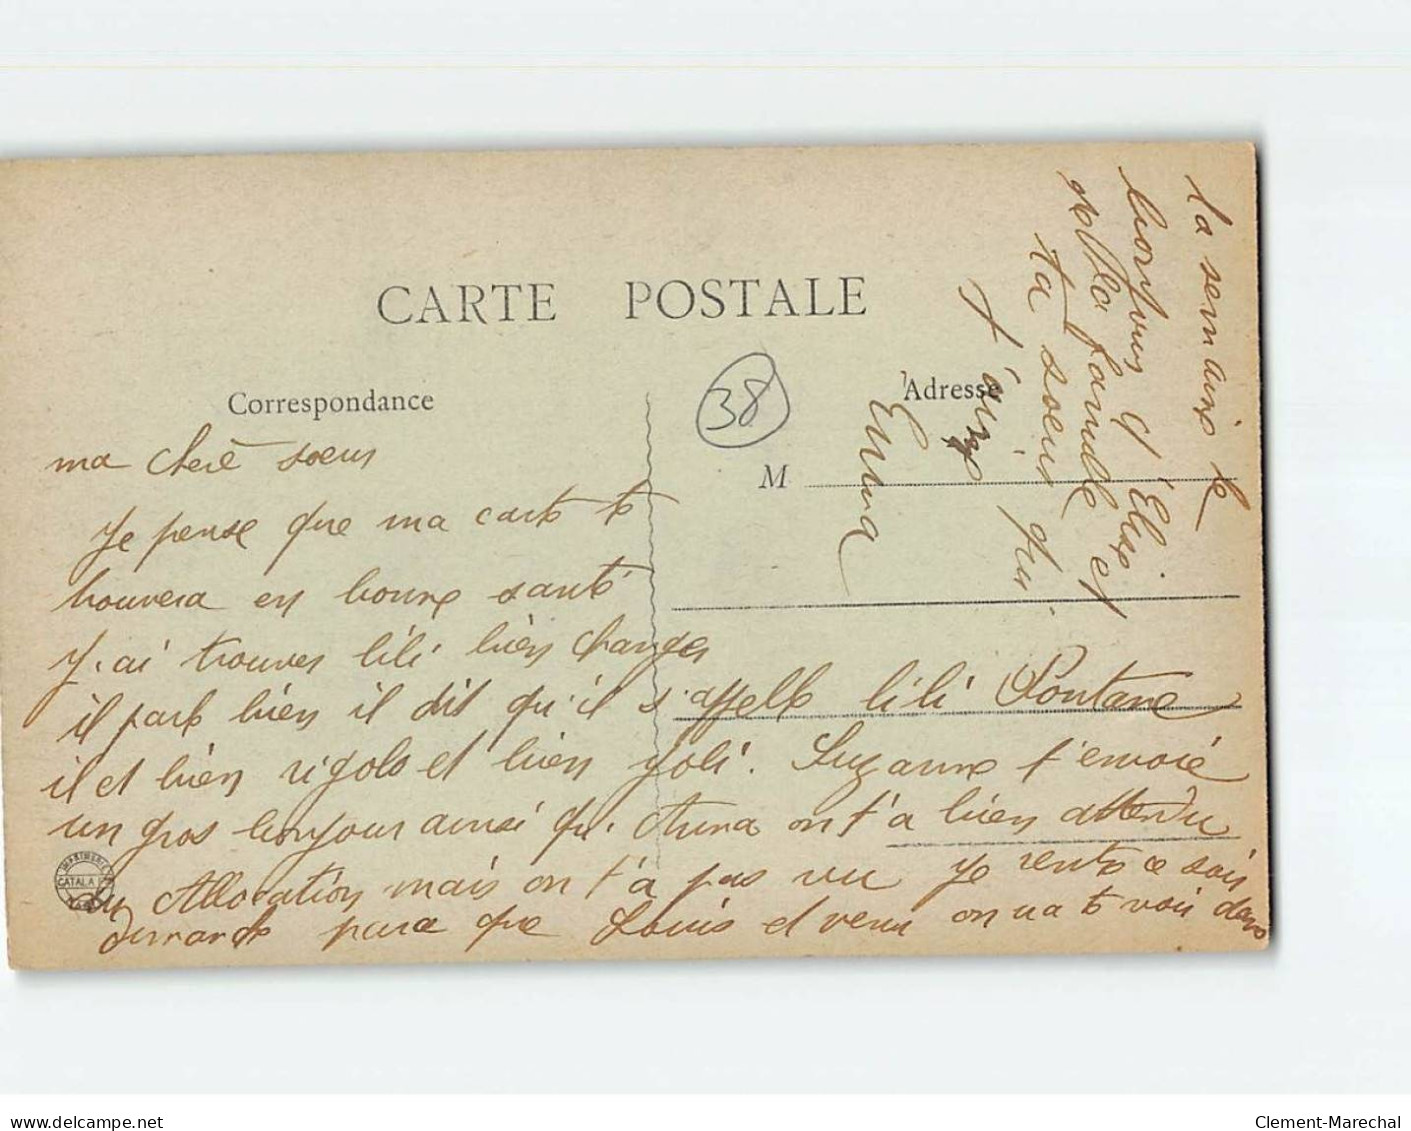 CARTE POSTALE
Correspondance
Adresse
38
M
ma cherè soeur
Je pense que ma carte te
trouvera en bonne santé
J'ai trouver lili bien changer
il parle bien il dit qu'il s'appelle lili Pontane
il et bien rigolo et bien joli. Suzanne t'envoié
un gros bonjour ainsi que Anna on t'a bien attendu
au Allocation mais on t'a pas vu je rentre ce soir
demande parce que Louis et venu on va te voir dans
la semaine le
bonjour d'Élise
et la famille et
ta soeur qui
t'aime
Emma
IMPRIMERIE
CATALA F
www.delcampe.net
Clement-Marechal